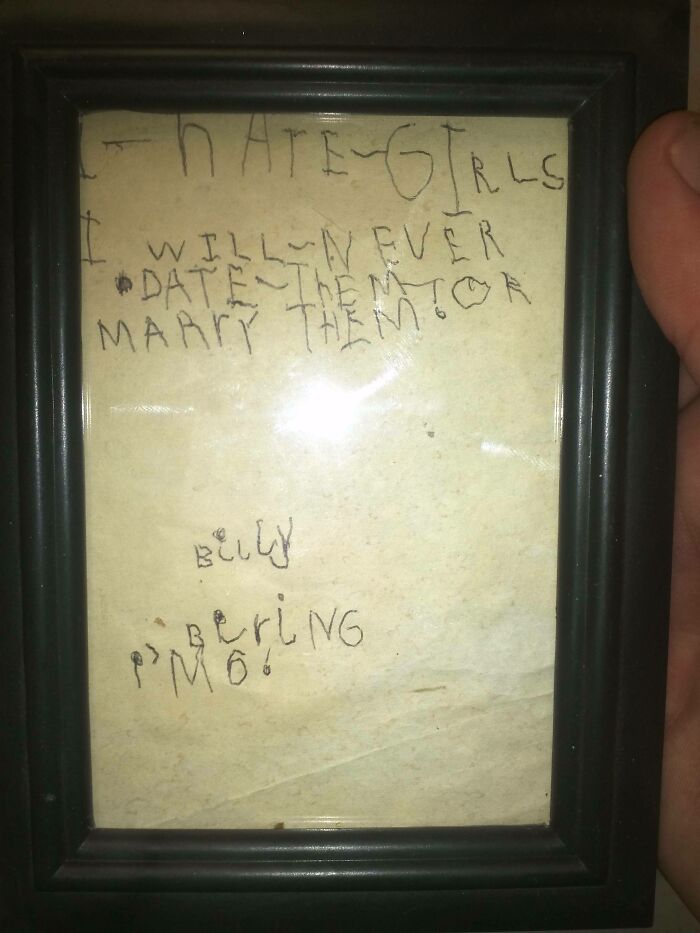 I-hATE-GIRLS
I WILL-NEVER
DATE-ThEM-!OR
MARrY THEM!
BiLLy
BLriNG
i'M 6!